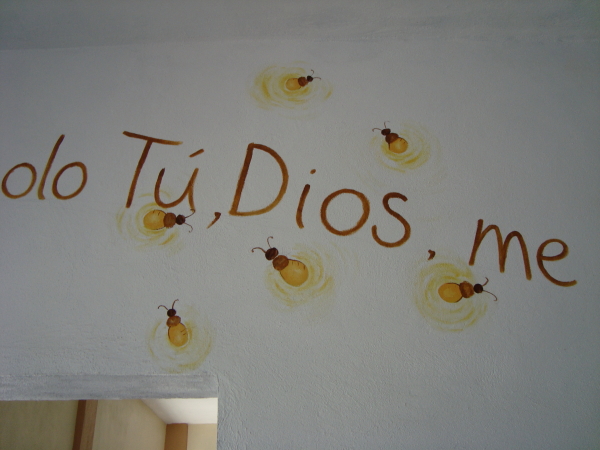 olo Tú, Dios, me